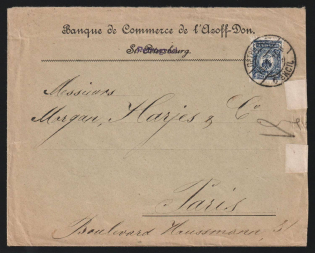 Banque de Commerce de l'Azoff-Don,
St. Petersbourg.
Messieurs
Morgan, Harjes & Co
Paris
Boulevard Haussmann 31